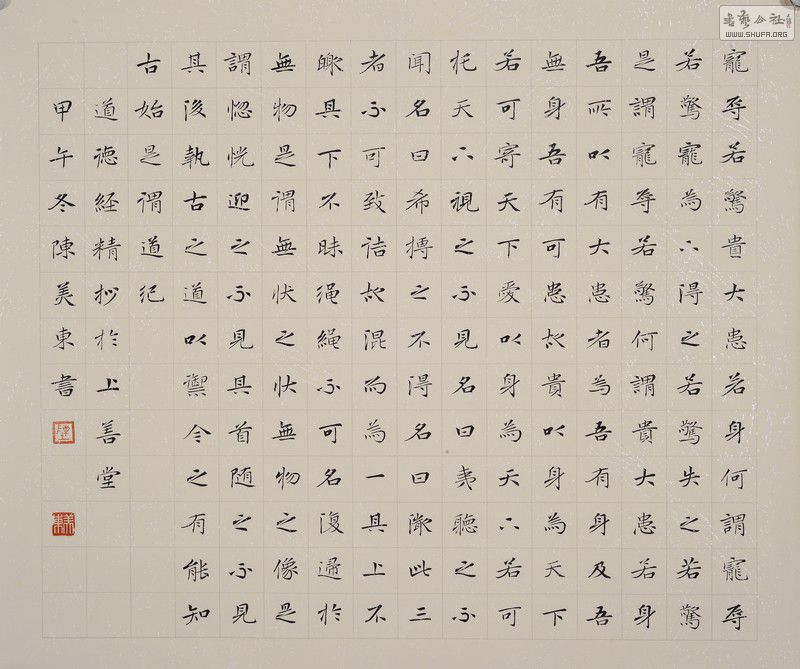 寵辱若驚貴大患若身何謂寵辱
若驚寵為下得之若驚失之若驚
是謂寵辱若驚何謂貴大患若身
吾所以有大患者為吾有身及吾
無身吾有可患故貴以身為天下
若可寄天下愛以身為天下若可
托天下視之不見名曰夷聽之不
聞名曰希搏之不得名曰微此三
者不可致詰故混而為一其上不
皦其下不昧繩繩不可名復歸於
無物是謂無狀之狀無物之像是
謂惚恍迎之不見其首随之不見
其後執古之道以禦今之有能知
古始是谓道紀
道德經精抄於上善堂
甲午冬陳美東書
美東
書藝公社
WWW.SHUFA.ORG